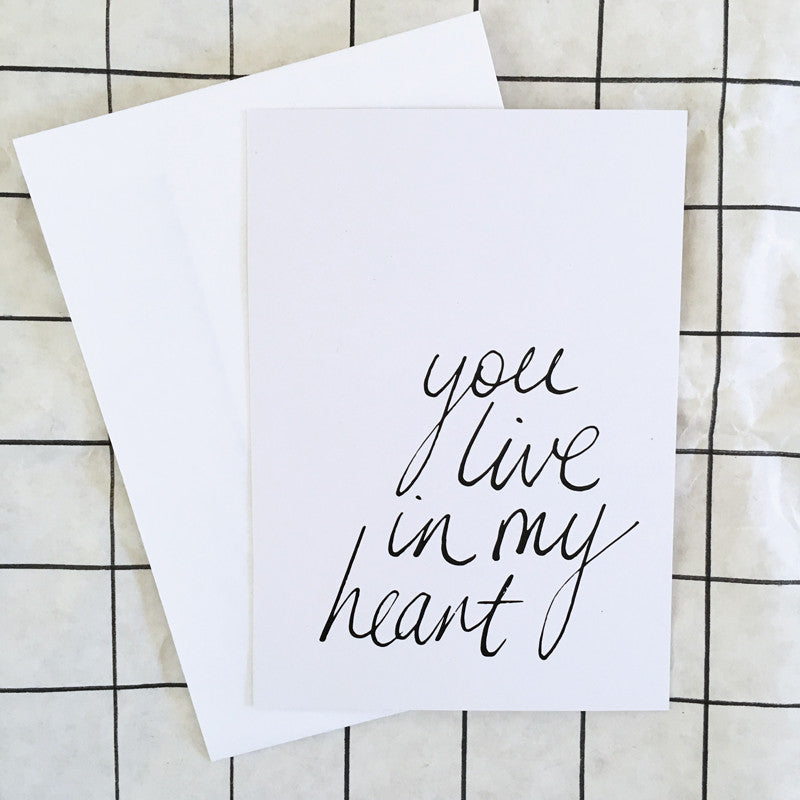 you
live
in my
heart